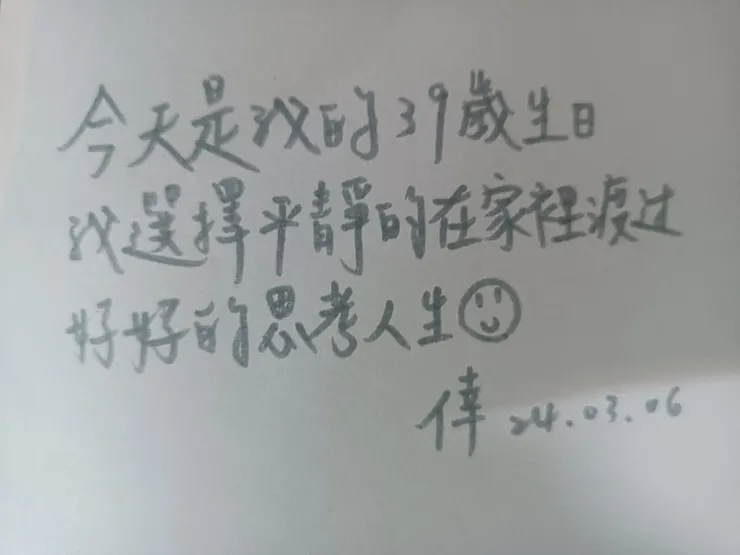 今天是我的39歲生日
我選擇平靜的在家裡渡过
好好的思考人生☺
倖 24.03.06